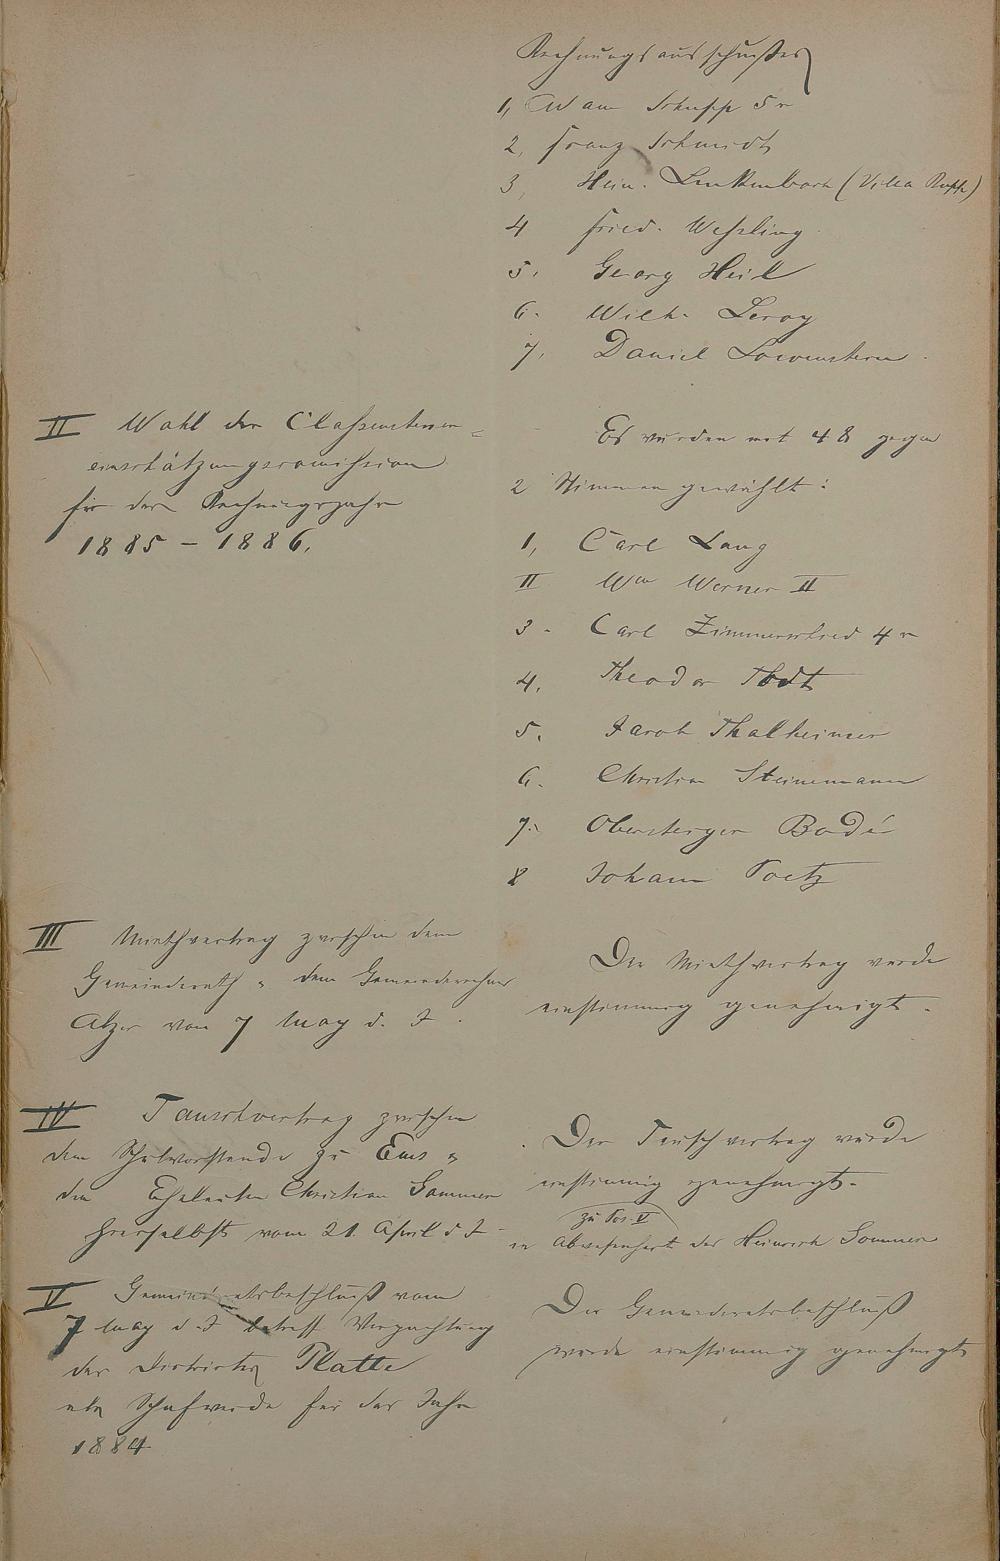 Rechnungsausschußes
1, Adam Schupp 5r
2, Franz Schmidt
3, Hein. Linkenbach (Villa Rupp)
4 Fried. Weßling
5. Georg Heil
6. Wilh. Leroy
7, Daniel Loewenstein.
II Wahl der Classensteuer-
einschätzungscomißion
für das Rechnungsjahr
1885 – 1886.
Es wurden mit 48 gegen
2 Stimmen gewählt:
1, Carl Lang
II Wm Werner II
3. Carl Zimmerschied 4r
4. Theodor Thodt
5. Jacob Thalheimer
6. Christian Steinemann
7. Obersteiger Bodé
8 Johann Poetz
III Miethvertrag zwischen dem
Gemeinderath u dem Gemeinderechner
Alzer vom 7 May d. J.
Der Miethvertrag wurde
einstimmig genehmigt.
IV Tauschvertrag zwischen
dem Schulvorstande zu Ems u
den Eheleuten Christian Sommer
hierselbst vom 21. April d J
Der Tauschvertrag wurde
einstimmig genehmigt.
zu Pos. V
in Abwesenheit des Heinrich Sommer
V Gemeinderatsbeschluß vom
7 May d. J betreff Verpachtung
des Districtes Platte
als Schafweide für das Jahr
1884
Der Gemeinderatsbeschluß
wurde einstimmig genehmigt